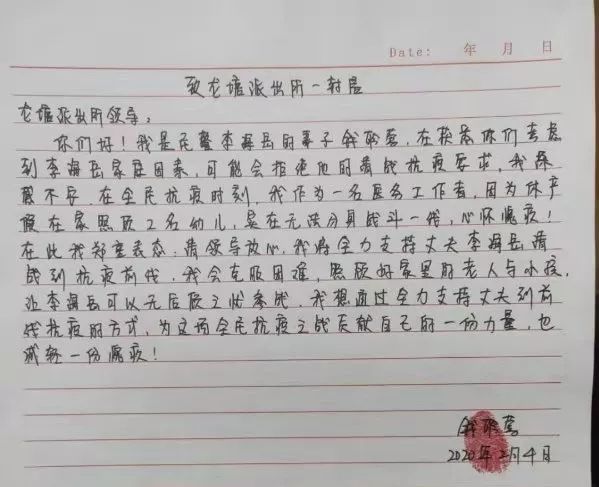 Date: 年 月 日
致龙塘派出所一封信
龙塘派出所领导：
你们好！我是民警李海岳的妻子钱聪莺，在获悉你们考虑
到李海岳家庭因素，可能会拒绝他的请战抗疫要求，我深
感不安。在全民抗疫时刻，我作为一名医务工作者，因为休产
假在家照顾2名幼儿，实在无法分身战斗一线，心怀愧疚！
在此我郑重表态：请领导放心，我将全力支持丈夫李海岳请
战到抗疫前线，我会克服困难，照顾好家里的老人与小孩，
让李海岳可以无后顾之忧参战，我想通过全力支持丈夫到前
线抗疫的方式，为这场全民抗疫之战贡献自己的一份力量，也
减轻一份愧疚！
2020年2月4日